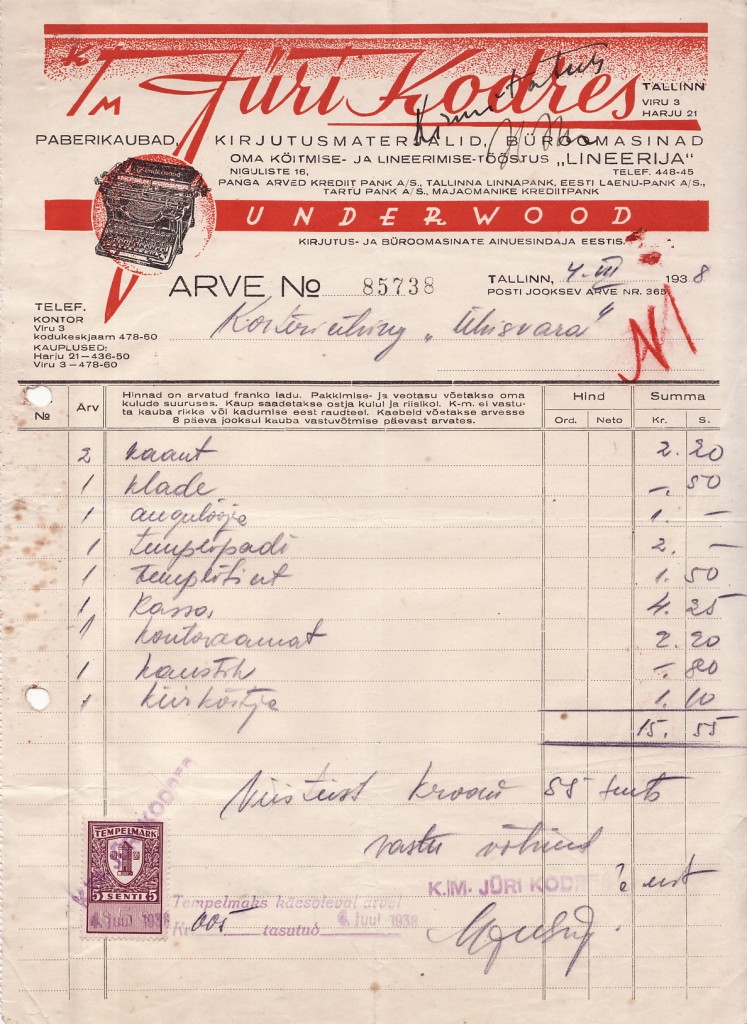 K/M Jüri Kodres
TALLINN
VIRU 3
HARJU 21
PABERIKAUBAD, KIRJUTUSMATERJALID, BÜROOMASINAD
OMA KÖITMISE- JA LINEERIMISE-TÖÖSTUS „LINEERIJA"
NIGULISTE 16, TELEF. 448-45
PANGA ARVED KREDIIT PANK A/S., TALLINNA LINNAPANK, EESTI LAENU-PANK A/S.,
TARTU PANK A/S., MAJAOMANIKE KREDIITPANK
UNDERWOOD
KIRJUTUS- JA BÜROOMASINATE AINUESINDAJA EESTIS.
ARVE No 85738
TALLINN, 4. VII 1938
POSTI JOOKSEV ARVE NR. 365
TELEF.
KONTOR
Viru 3
kodukeskjaam 478-60
KAUPLUSED:
Harju 21—436-50
Viru 3—478-60
„Ühisvara"
N1
№ Arv
Hinnad on arvatud franko ladu. Pakkimise- ja veotasu võetakse oma
kulude suuruses. Kaup saadetakse ostja kulul ja riisikol. K-m. ei vastu-
ta kauba rikke või kadumise eest raudteel. Kaebeid võetakse arvesse
8 päeva jooksul kauba vastuvõtmise päevast arvates.
Hind Summa
Ord. Neto Kr. S.
2 kaant 2. 20
1 klade –. 50
1 augulööja 1. –
1 templipadi 2. –
1 templitint 1. 50
1 kassa 4. 25
1 kontoraamat 2. 20
1 kaustik –. 80
1 1. 10
15. 55
Viisteist krooni 55 senti
vastu võtnud
K./M. JÜRI KODRES
TEMPELMARK
5 SENTI 5
4. juul 1938
Tempelmaks käesoleval arvel
Kr. 005 tasutud 4. juul 1938